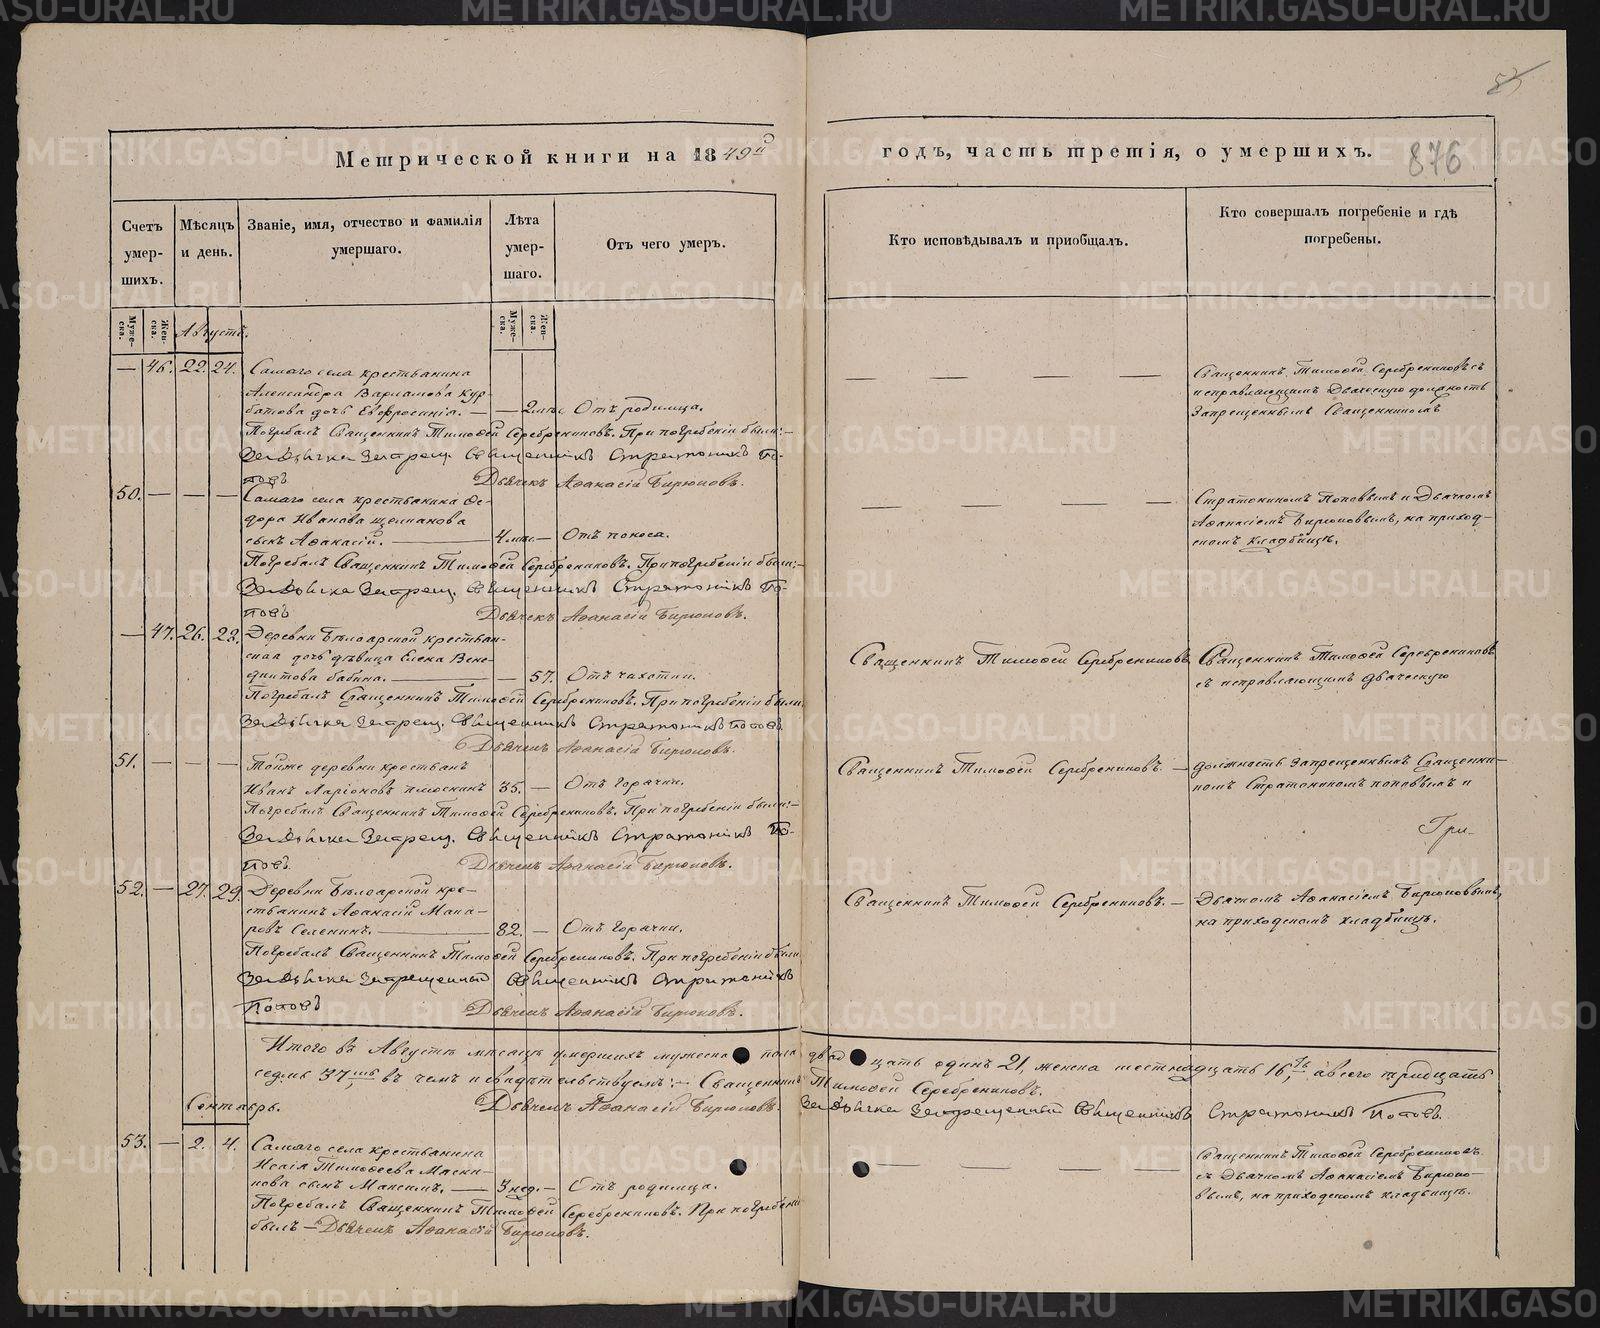 Метрической книги на 1849й
годъ, часть третія, о умершихъ.
876
Счетъ умер-шихъ.
Мѣсяцъ и день.
Званіе, имя, отчество и фамилія умершаго.
Лѣта умер-шаго.
Отъ чего умеръ.
Кто исповѣдывалъ и пріобщалъ.
Кто совершалъ погребеніе и гдѣ погребены.
Муже-ска.
Жен-ска.
Августъ.
Муже-ска.
Жен-ска.
— 46. 22. 24. Самаго села крестьянина
Александра Варламова Кур-
батова дочь Евфросинія. — — 2 мѣс. Отъ родимца.
Погребалъ Священникъ Тимофей Серебрениковъ. При погребеніи были:—
За Дьячка Запрещ. Священникъ Стратоникъ По-
повъ
Дьячекъ Афанасій Бирюковъ.
Священникъ Тимофей Серебрениковъ съ
исправляющимъ Дьяческую должность
Запрещеннымъ Священникомъ
50. — — — Самаго села крестьянина Фе-
дора Иванова
сынъ Афанасій. — 4 мѣс. — Отъ поноса.
Погребалъ Священникъ Тимофей Серебрениковъ. При погребеніи были:—
За Дьячка Запрещ. Священникъ Стратоникъ По-
повъ
Дьячекъ Афанасій Бирюковъ.
Стратоникомъ Поповымъ и Дьячкомъ
Афанасіемъ Бирюковымъ, на приход-
скомъ кладбищѣ.
— 47. 26. 28. Деревни Бѣлоярской крестьян-
ская дочь дѣвица Елена Вене-
диктова Бабина. — — 57. Отъ чахотки.
Погребалъ Священникъ Тимофей Серебрениковъ. При погребеніи были
За Дьячка Запрещ. Священникъ Стратоникъ Поповъ
Дьячекъ Афанасій Бирюковъ.
Священникъ Тимофей Серебрениковъ
Священникъ Тимофей Серебрениковъ
съ исправляющимъ дьяческую
51. — — — Тойже деревни крестьянъ
Иванъ Ларіоновъ Плюснинъ 35. — Отъ горячки.
Погребалъ Священникъ Тимофей Серебрениковъ. При погребеніи были:—
За Дьячка Запрещ. Священникъ Стратоникъ По-
повъ.
Дьячекъ Афанасій Бирюковъ.
Священникъ Тимофей Серебрениковъ. —
должность Запрещеннымъ Священни-
комъ Стратоникомъ Поповымъ и
52. — 27. 29. Деревни Бѣлоярской кре-
стьянинъ Афанасій Мака-
ровъ Селенинъ. — 82. — Отъ горячки.
Погребалъ Священникъ Тимофей Серебрениковъ. При погребеніи были
За Дьячка Запрещенный Священникъ Стратоникъ
Поповъ
Дьячекъ Афанасій Бирюковъ.
Священникъ Тимофей Серебрениковъ. —
Дьячкомъ Афанасіемъ Бирюковымъ,
на приходскомъ кладбищѣ.
Итого въ Августѣ мѣсяцѣ умершихъ мужеска пола двадцать одинъ 21, женска шестнадцать 16, а всего тридцать
седмь 37 въ чемъ и свидѣтельствуемъ:— Священникъ Тимофей Серебрениковъ.
Дьячекъ Афанасій Бирюковъ. За Дьячка Запрещенный Священникъ Стратоникъ Поповъ.
Сентябрь.
53. — 2. 4. Самаго села крестьянина
Исаія Тимофеева Масни-
кова сынъ Максимъ. — 3 нед. — Отъ родимца.
Погребалъ Священникъ Тимофей Серебрениковъ. При погребеніи
былъ — Дьячекъ Афанасій Бирюковъ.
Священникъ Тимофей Серебрениковъ
съ Дьячкомъ Афанасіемъ Бирюко-
вымъ, на приходскомъ кладбищѣ.
METRIKI.GASO-URAL.RU